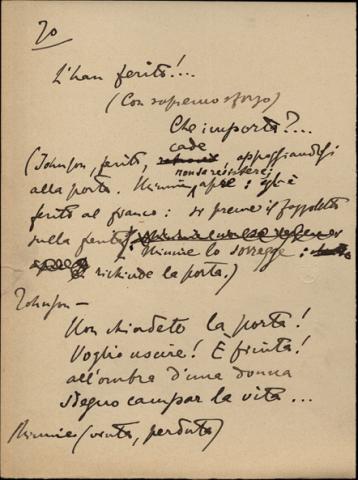 70
L'han ferito!...
(Con supremo sforzo)
Che importa?...
cade
(Johnson, ferito, , appoggiandosi
non sa resistere:
alla porta. Minnie apre: egli è
ferito al fianco: si preme il fazzoletto
sulla ferita.
Minnie lo sorregge:
richiude la porta.)
Johnson —
Non chiudete la porta!
Voglio uscire! È finita!
all'ombra d'una donna
sdegno campar la vita...
Minnie (vinta, perduta)